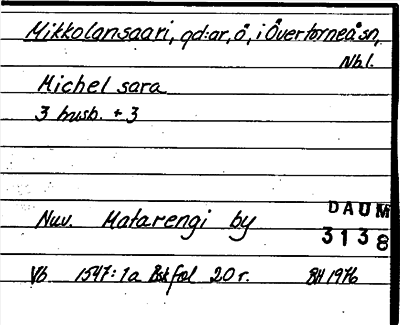 Mikkolansaari, gd:ar, å, i Övertorneå sn,
Nbl.
Michel sara
3 husb. + 3
Nuv. Matarengi by
DAUM
3138
Vb 1547:1a 20 r. BH 1976